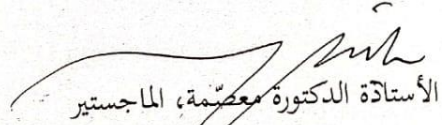 الأستاذة الدكتورة معصّمة، الماجستير